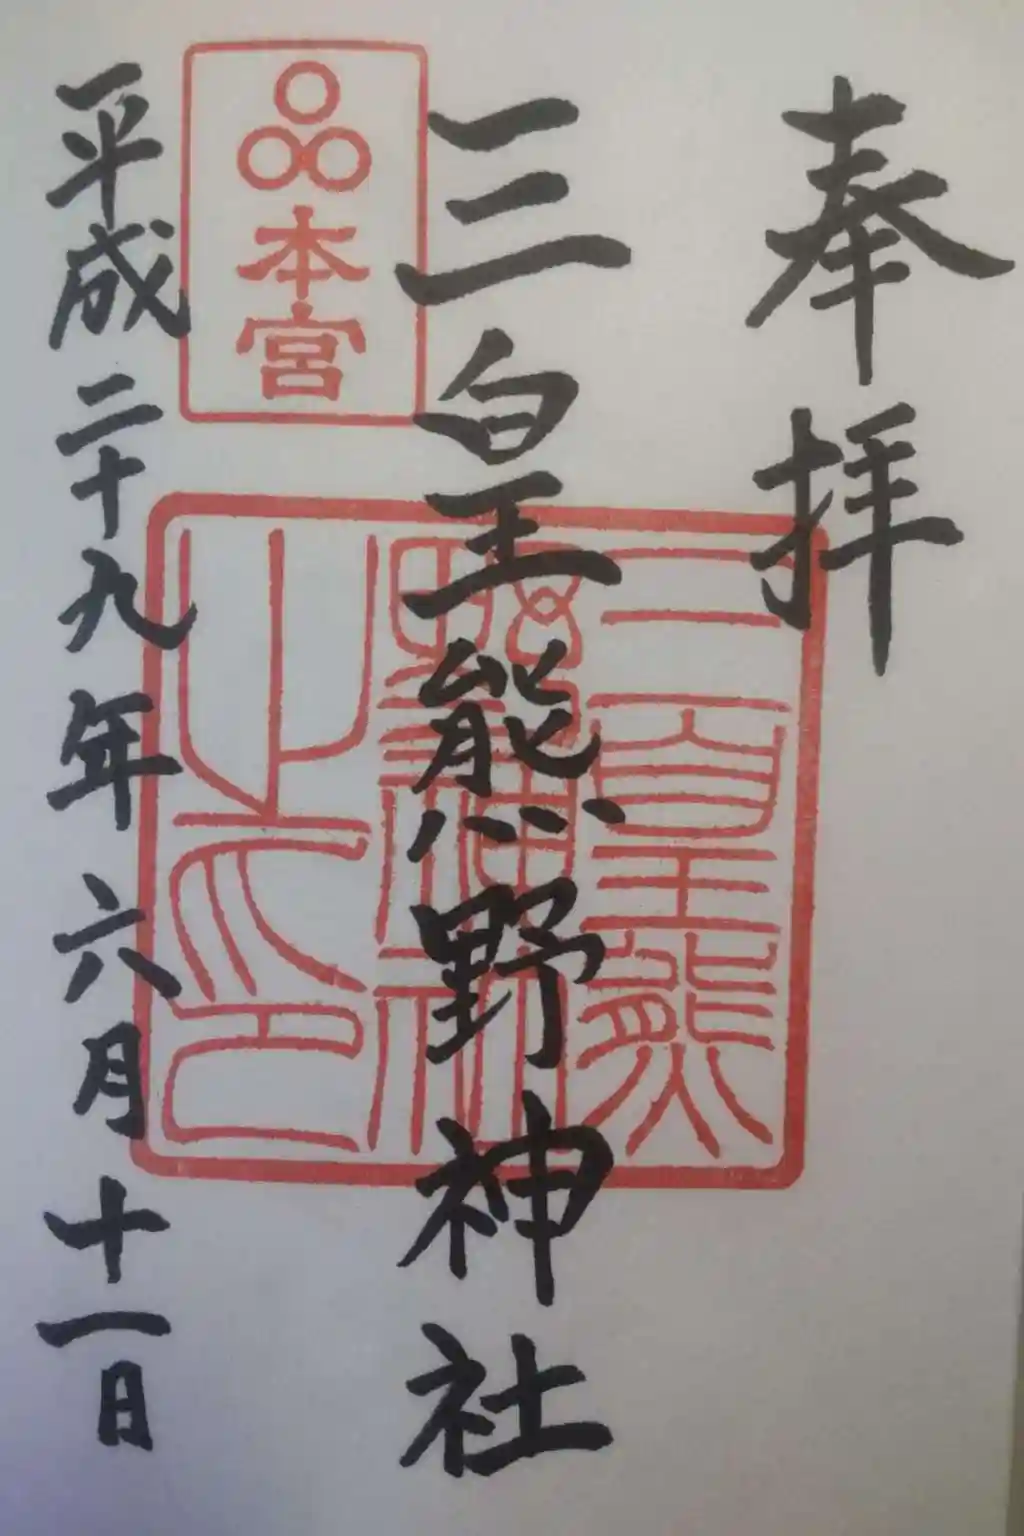 奉拝
三皇熊野神社
三皇熊
野神社
之印
本宮
平成二十九年六月十一日